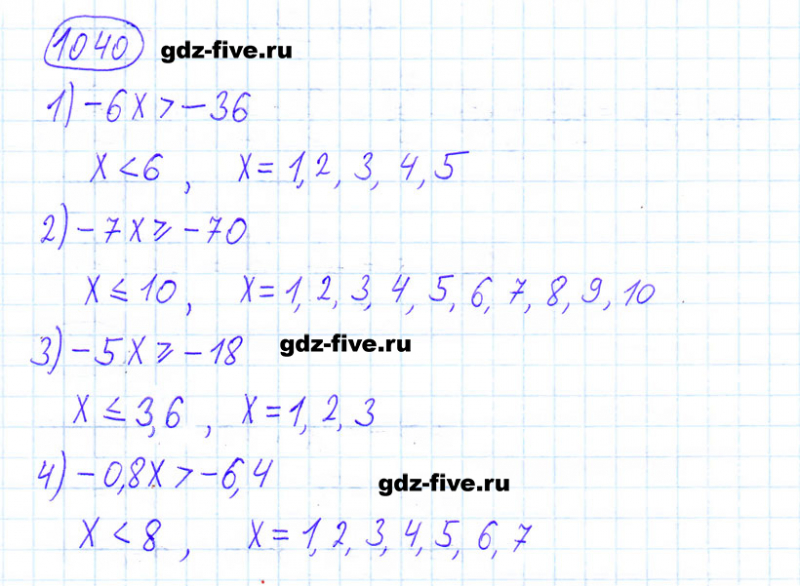 1040 gdz-five.ru
1) -6x > -36
x < 6, x = 1, 2, 3, 4, 5
2) -7x ⩾ -70
x ≤ 10, x = 1, 2, 3, 4, 5, 6, 7, 8, 9, 10
3) -5x ⩾ -18 gdz-five.ru
x ≤ 3,6, x = 1, 2, 3
4) -0,8x > -6,4
gdz-five.ru
x < 8, x = 1, 2, 3, 4, 5, 6, 7